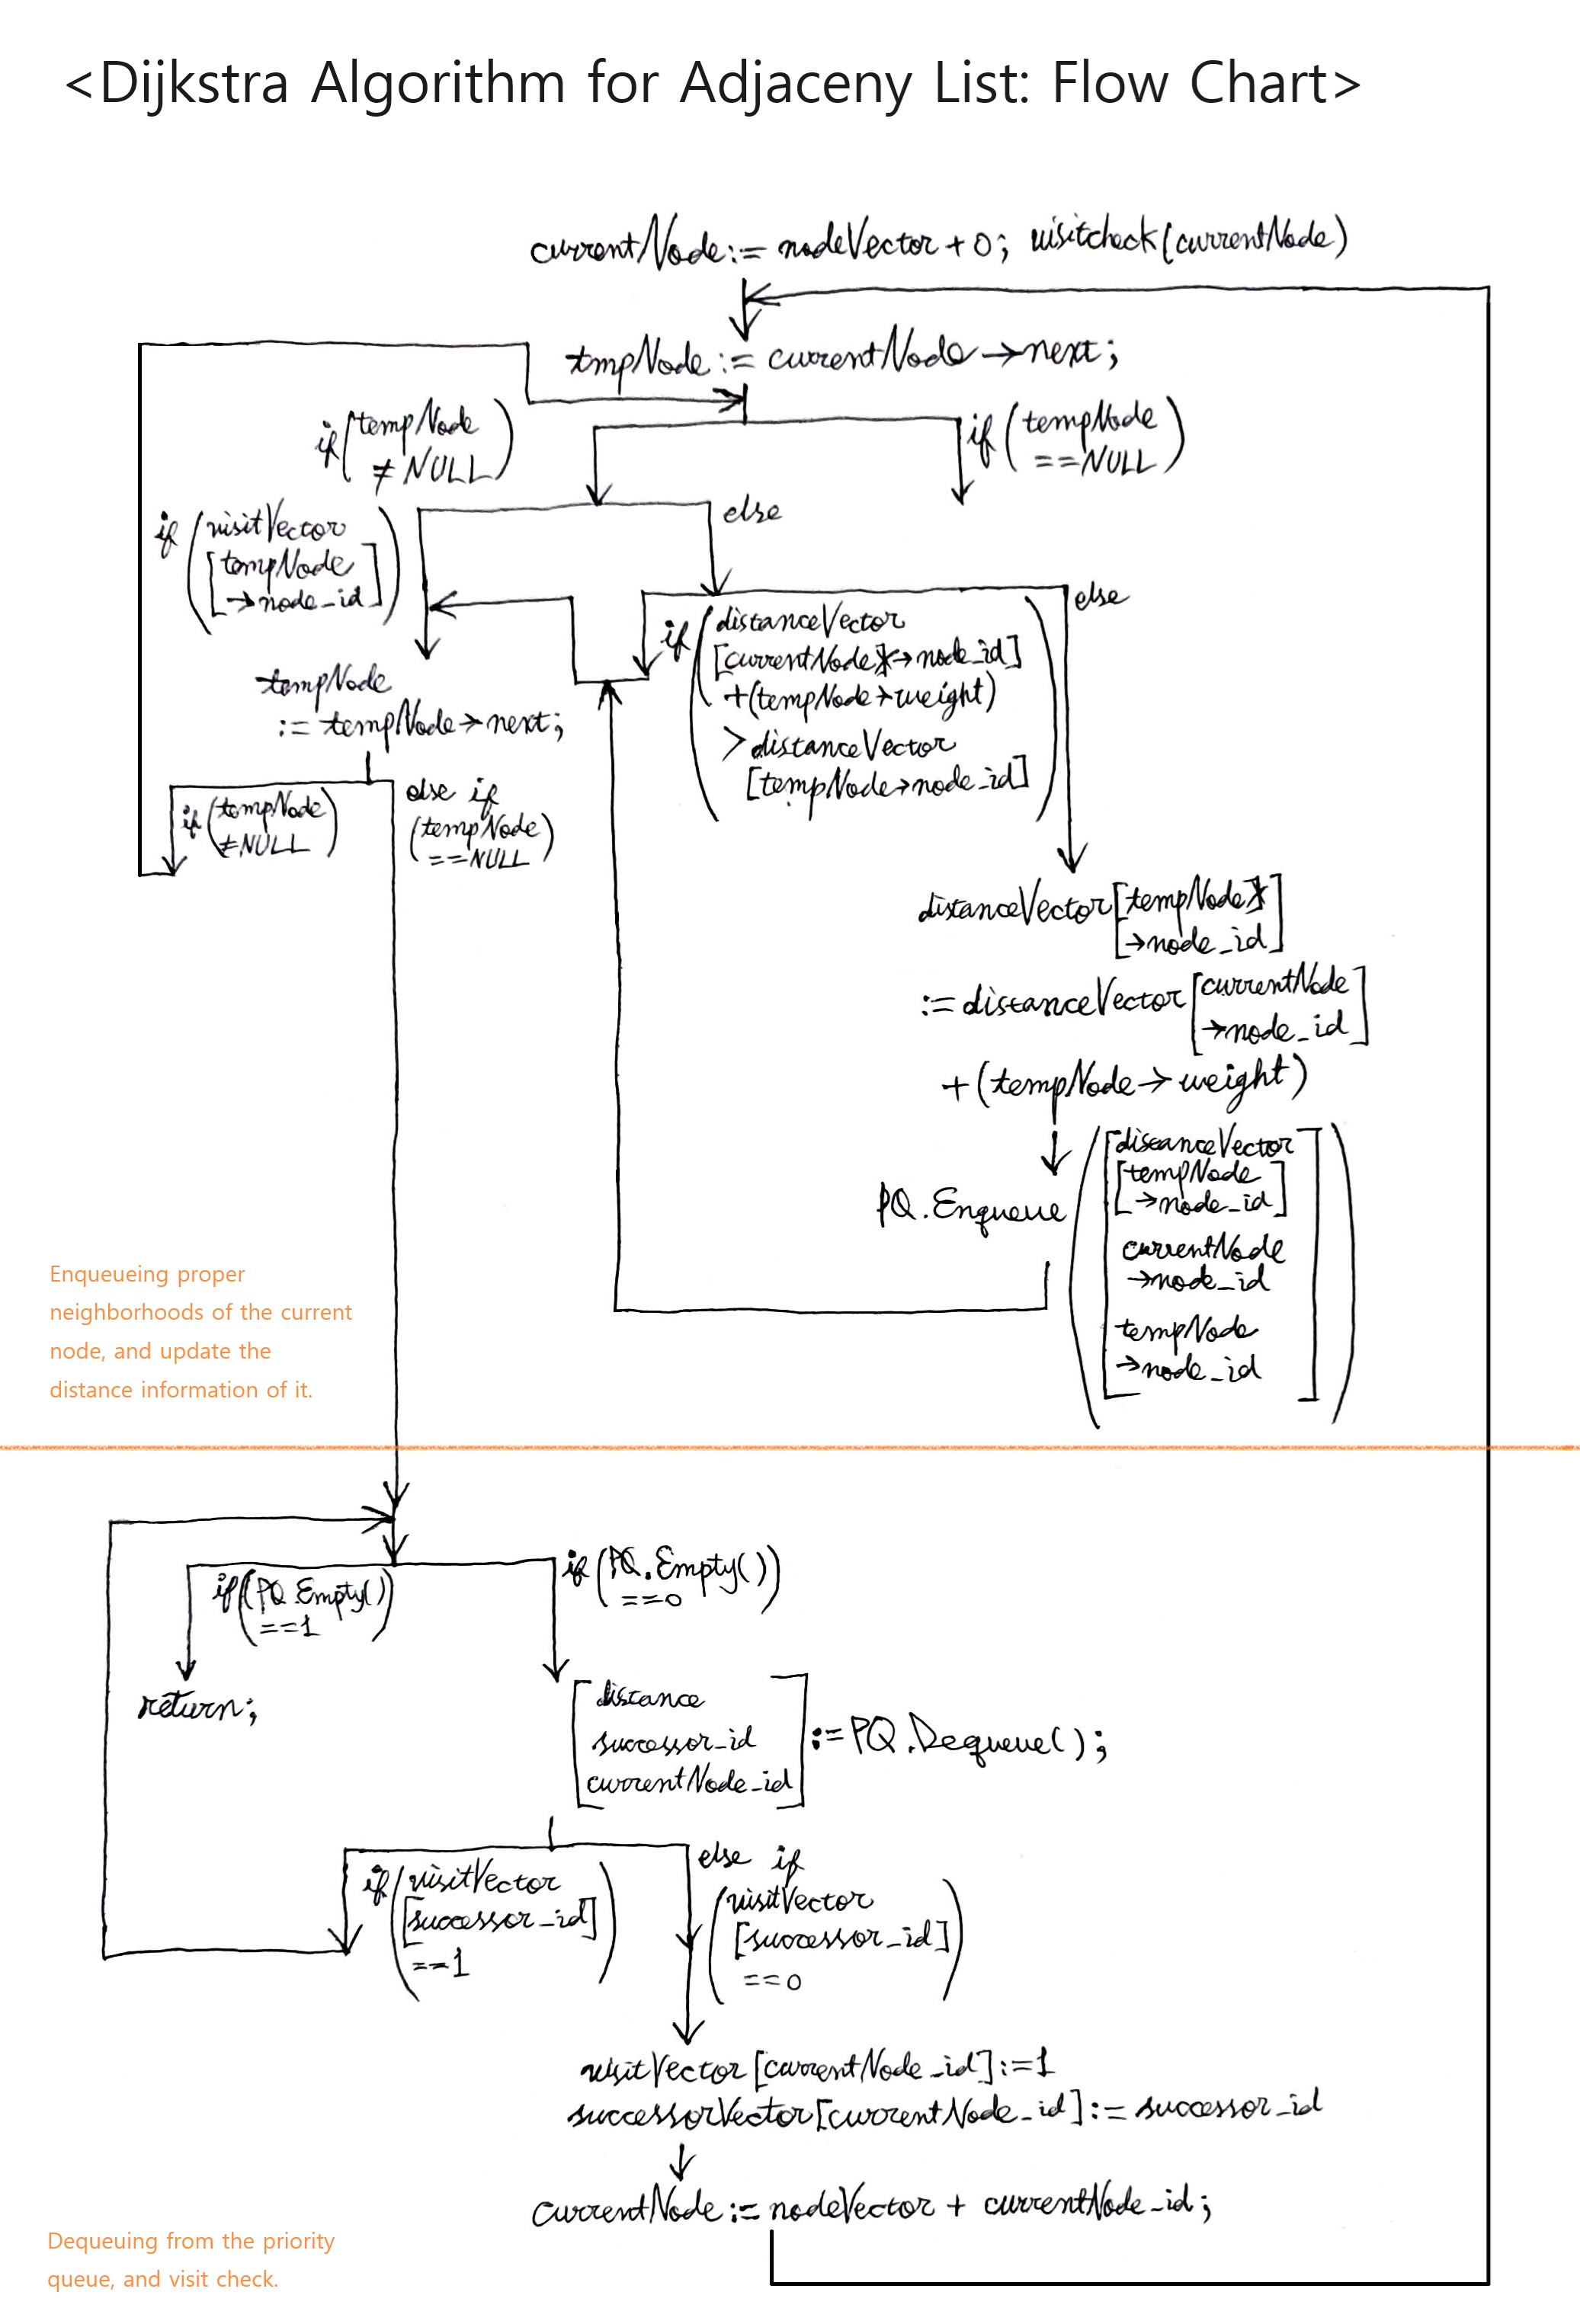 <Dijkstra Algorithm for Adjaceny List: Flow Chart>
currentNode:= nodeVector + 0; visitcheck(currentNode)
tmpNode := currentNode → next;
if (tempNode
≠ NULL)
if (tempNode
==NULL)
if (visitVector
[tempNode
→node_id])
else
else
if (distanceVector
[currentNode→node_id]
+(tempNode→weight)
>distanceVector
[tempNode→node_id])
tempNode
:= tempNode→next;
if (tempNode
≠NULL)
else if
(tempNode
==NULL)
distanceVector[tempNode
→node_id]
:= distanceVector[currentNode
→node_id]
+(tempNode→weight)
PQ.Enqueue
([distanceVector
[tempNode
→node_id]
currentNode
→node_id
tempNode
→node_id])
Enqueueing proper
neighborhoods of the current
node, and update the
distance information of it.
if((PQ.Empty())
==1)
if (PQ.Empty())
==0)
return;
[distance
successor_id
currentNode_id]
:=PQ.Dequeue();
if (visitVector
[successor_id]
==1)
else if
(visitVector
[successor_id]
==0)
visitVector[currentNode_id]:=1
successorVector[currentNode_id]:= successor_id
currentNode:= nodeVector + currentNode_id;
Dequeuing from the priority
queue, and visit check.